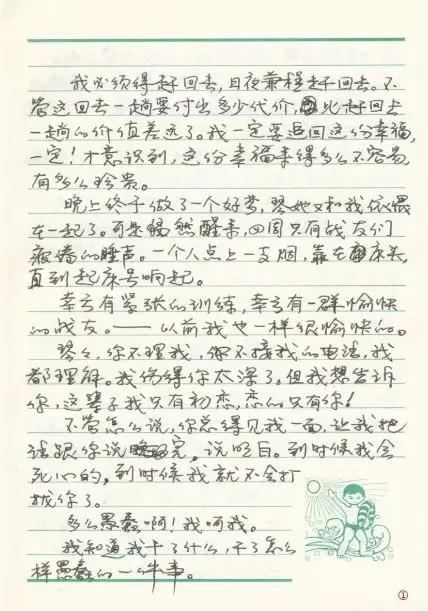 我必须得赶回去，日夜兼程赶回去。不
管这回去一趟要付出多少代价，比赶回去
一趟的价值差远了。我一定要追回这份幸福，
一定！才意识到，这份幸福来得多么不容易，
有多么珍贵。
晚上终于做了一个好梦，琴她又和我依偎
在一起了。可是猛然醒来，四周只有战友们
疲倦的睡声。一个人点上一支烟，靠在床头，
直到起床号响起。
幸亏有紧张的训练，幸亏有一群愉快
的战友。——以前我也一样很愉快的。
琴々，你不理我，你不接我的电话，我
都理解。我伤得你太深了。但我想告诉
你，这辈子我只有初恋，恋的只有你！
不管怎么说，你总得见我一面，让我把
话跟你说完，说明白。到时候我会
死心的，到时候我就不会打
扰你了。
多么愚蠢啊！我呵我。
我知道我干了什么，干了怎么
样愚蠢的一件事。
①